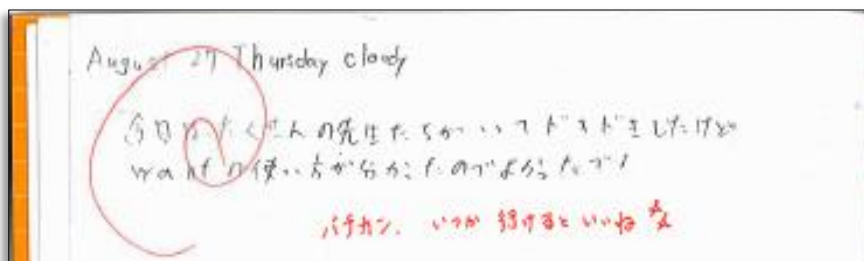 August 27 Thursday cloudy
今日はたくさんの先生たちがいてドキドキをしたけど
wantの使い方が分かったのでよかったです!
バチカン、いつか行けるといいね